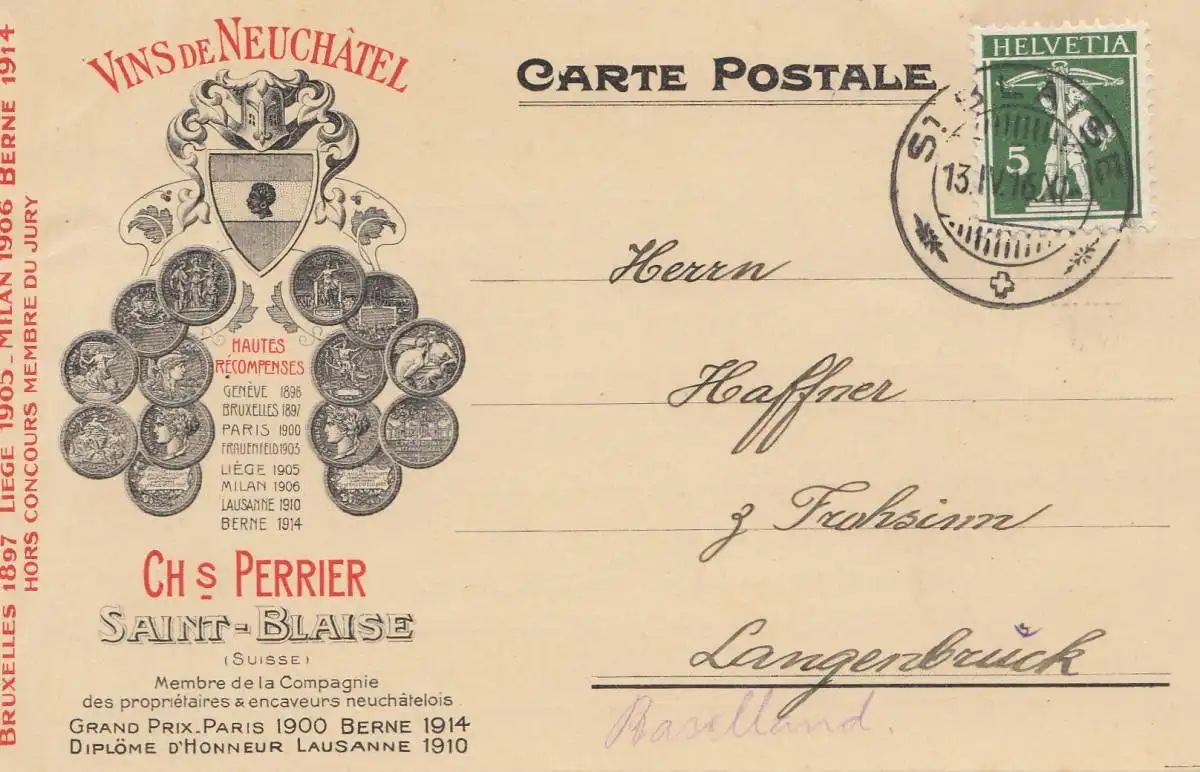 BRUXELLES 1897 LIEGE 1905 - MILAN 1906 BERNE 1914
HORS CONCOURS MEMBRE DU JURY
VINS DE NEUCHÂTEL
HAUTES
RÉCOMPENSES
GENÈVE 1896
BRUXELLES 1897
PARIS 1900
FRAUENFELD 1903
LIÈGE 1905
MILAN 1906
LAUSANNE 1910
BERNE 1914
CHS PERRIER
SAINT-BLAISE
(SUISSE)
Membre de la Compagnie
des propriétaires & encaveurs neuchâtelois
GRAND PRIX-PARIS 1900 BERNE 1914
DIPLÔME D'HONNEUR LAUSANNE 1910
CARTE POSTALE
HELVETIA
5
ST BLAISE
13.IV.16.XI
Herrn
Haffner
z Frohsinn
Langenbruck
Baselland.